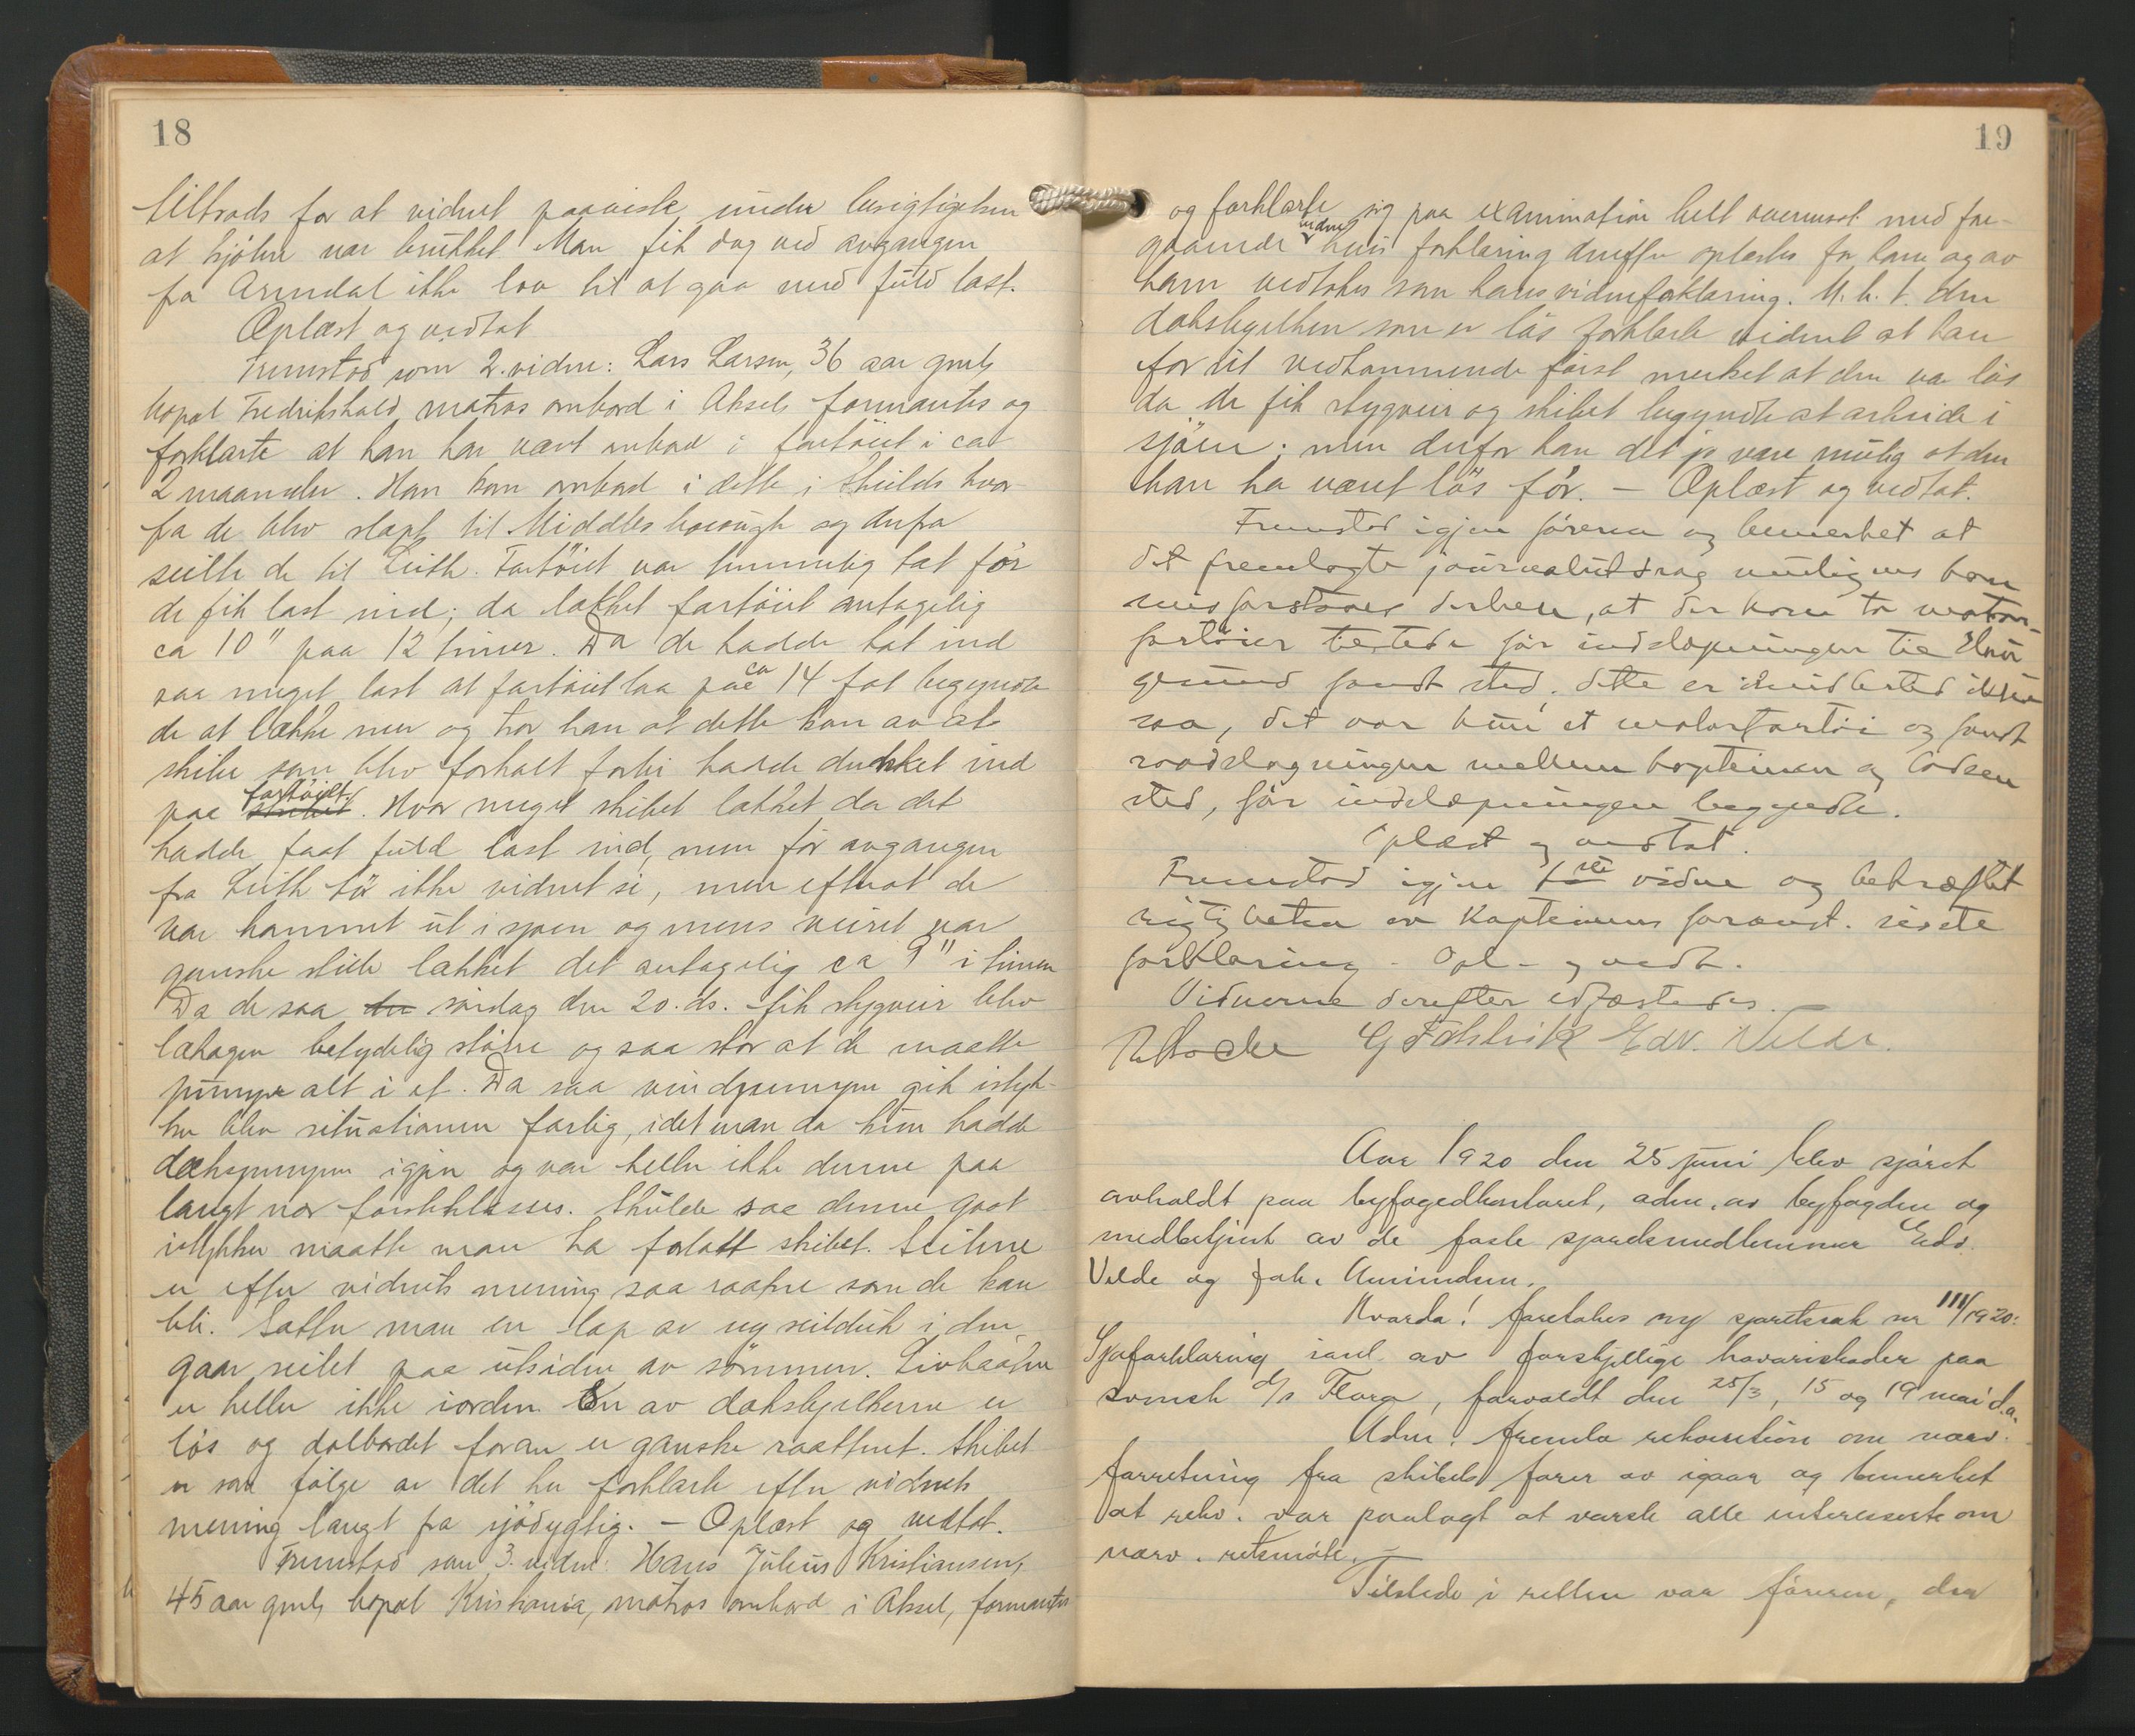 18
tiltrods for at vidnet paaviste under besigtigelsen
at kjølen var brukket. Man fik dog ved avgangen
fra Arendal ikke lov til at gaa med fuld last.
Oplæst og vedtat
Fremstod som 2. vidne: Lars Larsen, 36 aar gml,
bopæl Fredrikshald, matros ombord i Aksel, formantes og
forklarte at han har vært ombord i fartøiet i ca
2 maaneder. Han kom ombord i dette i Shields hvor-
fra de blev slæpt til Middlesborough og derfra
seilte de til Leith. Fartøiet var temmelig tæt før
de fik last ind; da lækket fartøiet antagelig
ca 10" paa 12 timer. Da de hadde tat ind
saa meget last at fartøiet laa paa ca 14 fot begyndte
de at lække mer og tror han at dette kom av at
skibe som blev forhalt forbi hadde dunket ind
paa skibet fartøiet. Hvor meget skibet lækket da det
hadde faat fuld last ind, men før avgangen
fra Leith tør ikke vidnet si, men efterat de
var kommet ut i sjøen og mens veiret var
ganske stille lækket det antagelig ca 9" i timen
Da de saa søndag den 20. ds. fik stygveir blev
lækagen betydelig større og saa stor at de maatte
pumpe alt i et. Da saa vindpumpen gik istyk-
ker blev situationen farlig, idet man da kun hadde
dækspumpen igjen og var heller ikke denne paa
langt nær førsteklasses. Skulde saa denne gaat
istykker maatte man ha forlatt skibet. Seilene
er efter vidnets mening saa raatne som de kan
bli. Sætter man en lap av ny seilduk i den
gaar seilet paa utsiden av sømmen. Livbaaten
er heller ikke iorden. En av dæksbjelkerne er
løs og dolbordet foran er ganske raattent. Skibet
er som følge av det her forklarte efter vidnets
mening langt fra sjødygtig. – Oplæst og vedtat.
Fremstod som 3. vidne: Hans Julius Kristiansen,
45 aar gml, bopæl Kristiania, matros ombord i Aksel, formantes
19
og forklarte sig paa examination helt overensst. med fore-
gaaende vidne hvis forklaring derefter oplæstes for ham og av
ham vedtokes som hans vidneforklaring. M.h.t. den
dæksbjelken som er løs forklarte vidnet at han
for sit vedkommende først merket at den var løs
da de fik stygveir og skibet begyndte at arbeide i
sjøen; men derfor kan det jo være mulig at den
kan ha været løs før. – Oplæst og vedtat.
Fremstod igjen føreren og bemerket at
det fremlagte journalutdrag muligens kan
misforstaaes derhen, at der kom to motor-
fartøier tilstede før indslæpningen til
grund fandt sted; dette er imidlertid ikke
saa, det var kun et motorfartøi og fandt
raadslagningen mellem kapteinen og lodsen
sted, før indslæpningen begyndte.
Oplæst og vedtat.
Fremstod igjen 1ste vidne og bekræftet
rigtigheten av Kapteinens foranst. sidste
forklaring – Opl. og vedt.
Vidnerne derefter edfæstedes.
Edv. Velde.
Aar 1920 den 25 juni blev sjøret
avholdt paa byfogedkontoret, adm. av byfogden og
medbetjent av de faste sjøretsmedlemmer Edv.
Velde og Joh. Amundsen.
Hvorda! foretokes ny sjøretssak nr III/1920:
Sjøforklaring ianl. av forskjellige havariskader paa
svensk d/s Flora, forvoldt den 25/3, 15 og 19 mai d.a.
Adm. fremla rekvisition om nærv.
forretning fra skibets fører av igaar og bemerket
at rekv. var paalagt at varsle alle interesserte om
nærv. retsmøte. –
Tilstede i retten var føreren, den